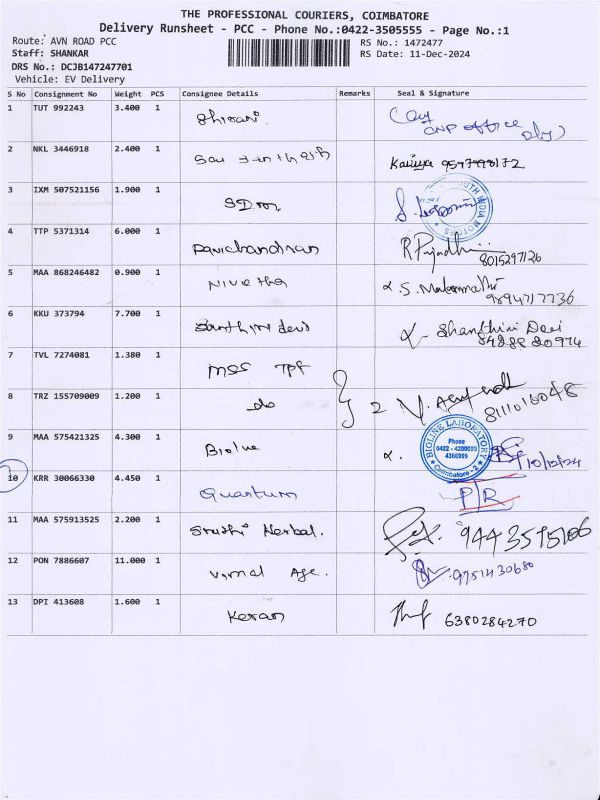 THE PROFESSIONAL COURIERS, COIMBATORE
Delivery Runsheet - PCC - Phone No.:0422-3505555 - Page No.:1
Route: AVN ROAD PCC
RS No.: 1472477
Staff: SHANKAR
RS Date: 11-Dec-2024
DRS No.: DCJB147247701
Vehicle: EV Delivery
S No Consignment No Weight PCS Consignee Details Remarks Seal & Signature
1 TUT 992243 3.400 1
office
2 NKL 3446918 2.400 1
3 IXM 507521156 1.900 1
SOUTH INDIA MOTORS
4 TTP 5371314 6.000 1 Ravichandran
8015297126
5 MAA 868246482 0.900 1 Nivetha
9894717736
6 KKU 373794 7.700 1 Santhini devi Shanthini Devi
7 TVL 7274081 1.380 1 MSS TPF
8 TRZ 155709009 1.200 1 do 2
9 MAA 575421325 4.300 1
BIOLINE LABORATORY
Phone
0422 - 4200099
4366999
Coimbatore - 2
10/12/24
10 KRR 30066330 4.450 1 Quantum P/R
11 MAA 575913525 2.200 1 Sruthi Herbal.
12 PON 7886607 11.000 1 Vimal Age. 9751430680
13 DPI 413608 1.600 1 Keran 6380284270